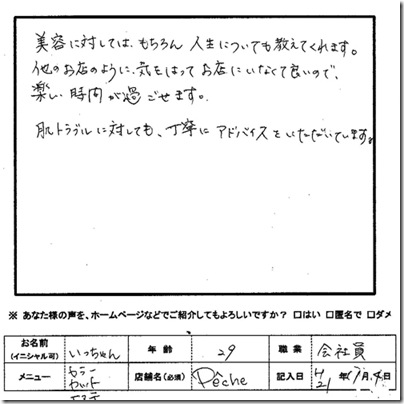 美容に対しては、もちろん人生についても教えてくれます。
他のお店のように、気をはってお店にいなくて良いので、
楽しい時間が過ごせます。
肌トラブルに対しても、丁寧にアドバイスをいただいています。
※ あなた様の声を、ホームページなどでご紹介してもよろしいですか? 口はい 口匿名で 口ダメ
お名前(イニシャル可) いっちゃん 年齢 29 職業 会社員
メニュー カラー カット エステ 店舗名(必須) Pêche 記入日 H21年 月 日